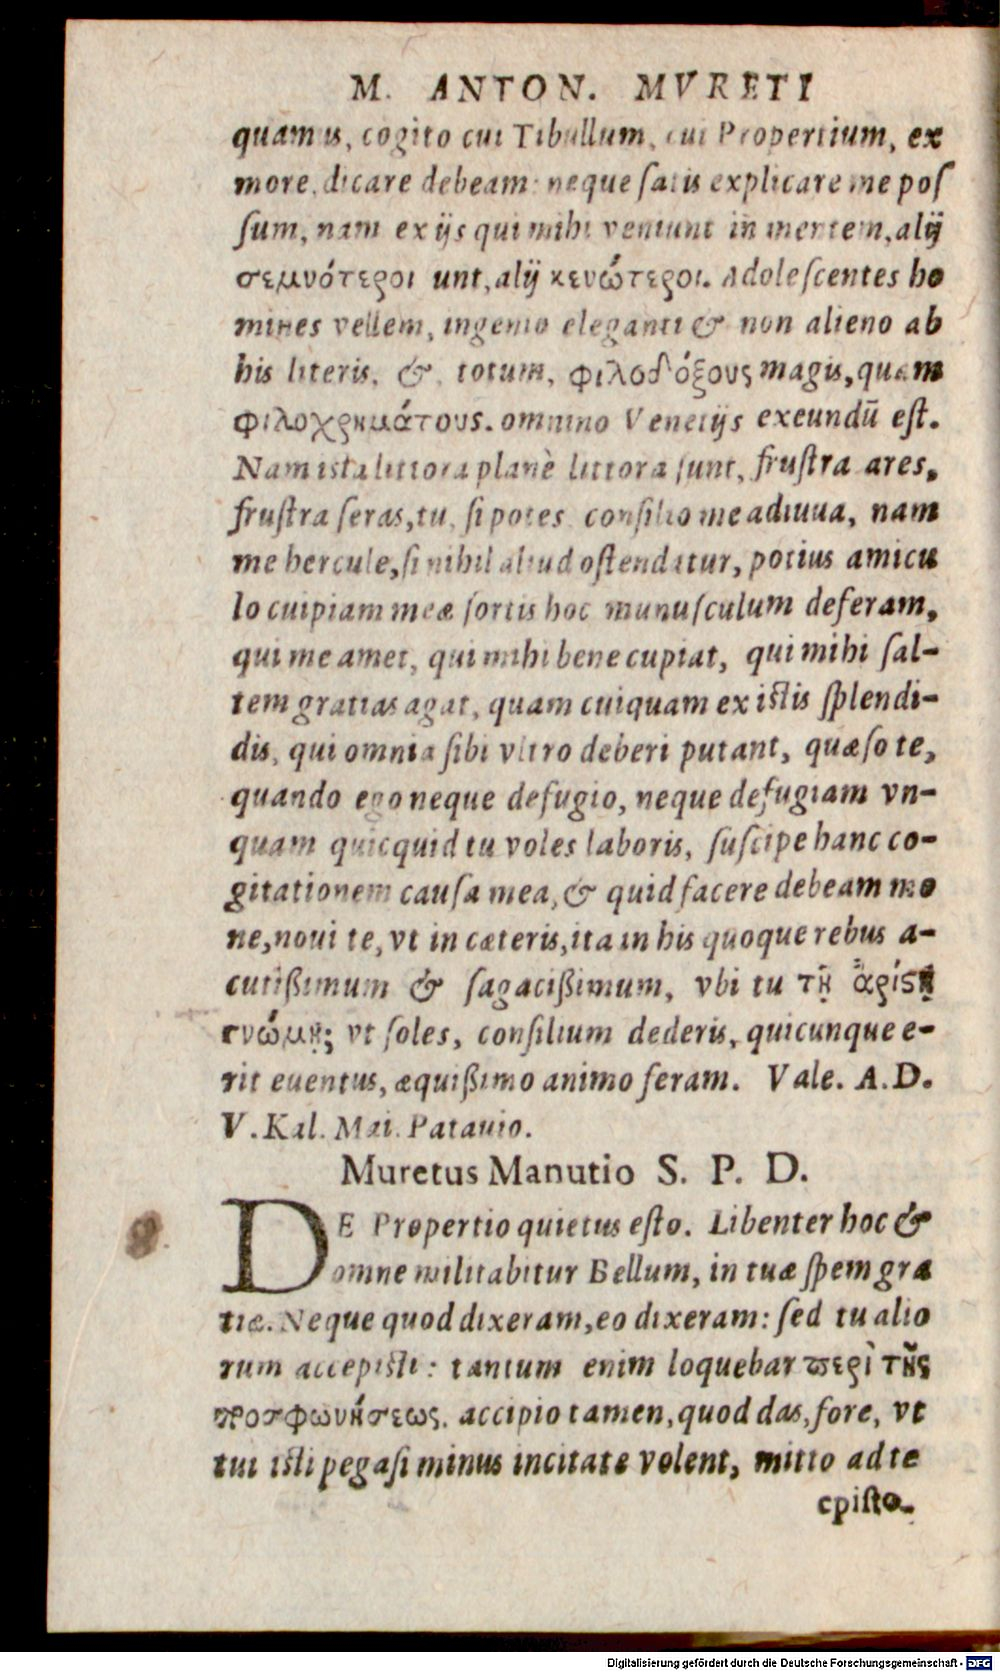 M. ANTON. MVRETI
quamuis, cogito cui Tibullum, cui Propertium, ex
more, dicare debeam: neque satis explicare me pos
sum, nam ex ijs qui mihi veniunt in mentem, alij
σεμνότεροι unt, alij κενώτεροι. Adolescentes ho
mines vellem, ingenio eleganti & non alieno ab
his literis, &, totum, φιλοδόξους magis, quam
φιλοχρημάτους. omnino Venetijs exeundū est.
Nam ista littora planè littora sunt, frustra ares,
frustra seras, tu, si potes consilio me adiuua, nam
me hercule, si nihil aliud ostendatur, potius amicu
lo cuipiam meæ sortis hoc munusculum deferam,
qui me amet, qui mihi bene cupiat, qui mihi sal-
tem gratias agat, quam cuiquam ex istis splendi-
dis, qui omnia sibi vltro deberi putant, quæso te,
quando ego neque defugio, neque defugiam vn-
quam quicquid tu voles laboris, suscipe hanc co-
gitationem causa mea, & quid facere debeam mo
ne, noui te, vt in cæteris, ita in his quoque rebus a-
cutißimum & sagacißimum, vbi tu τῇ ἀρίστῃ
γνώμῃ; vt soles, consilium dederis, quicunque e-
rit euentus, æquißimo animo feram. Vale. A.D.
V. Kal. Mai. Patauio.
Muretus Manutio S. P. D.
DE Propertio quietus esto. Libenter hoc &
omne militabitur Bellum, in tuæ spem gra
tiæ. Neque quod dixeram, eo dixeram: sed tu alio
rum accepisti: tantum enim loquebar περὶ τῆς
προσφωνήσεως. accipio tamen, quod das, fore, vt
tui isti pegasi minus incitate volent, mitto ad te
episto-
Digitalisierung gefördert durch die Deutsche Forschungsgemeinschaft - DFG